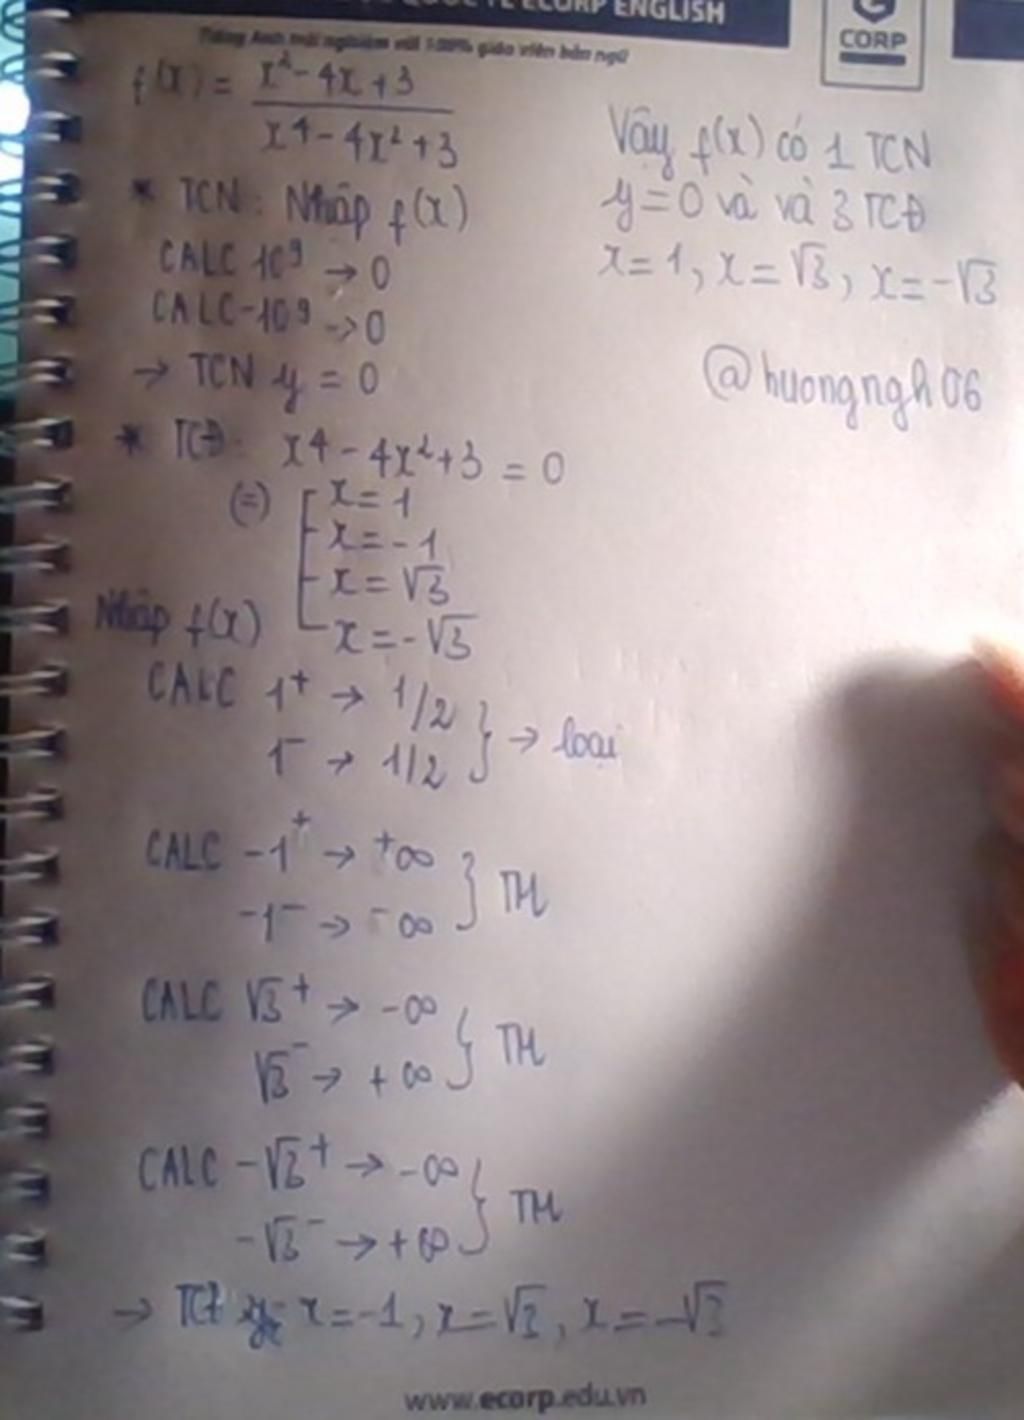 QUỐC TẾ ECORP ENGLISH
CORP
Tiếng Anh trải nghiệm với 100% giáo viên bản ngữ
f(x) = x²-4x+3 / x4-4x²+3
* TCN: Nhập f(x)
CALC 10⁹ → 0
CALC-10⁹ → 0
→ TCN y = 0
* TCĐ: x4-4x²+3 = 0
(=) [ x = 1
x = -1
x = √3
x = -√3
Nhập f(x)
CALC 1⁺ → 1/2
1⁻ → 1/2 } → loại
CALC -1⁺ → +∞
-1⁻ → -∞ } TM
CALC √3⁺ → -∞
√3⁻ → +∞ } TM
CALC -√3⁺ → -∞
-√3⁻ → +∞ } TM
→ TCĐ x=-1, x=√3, x=-√3
Vậy f(x) có 1 TCN
y=0 và và 3 TCĐ
x=1, x=√3, x=-√3
@huongngh06
www.ecorp.edu.vn